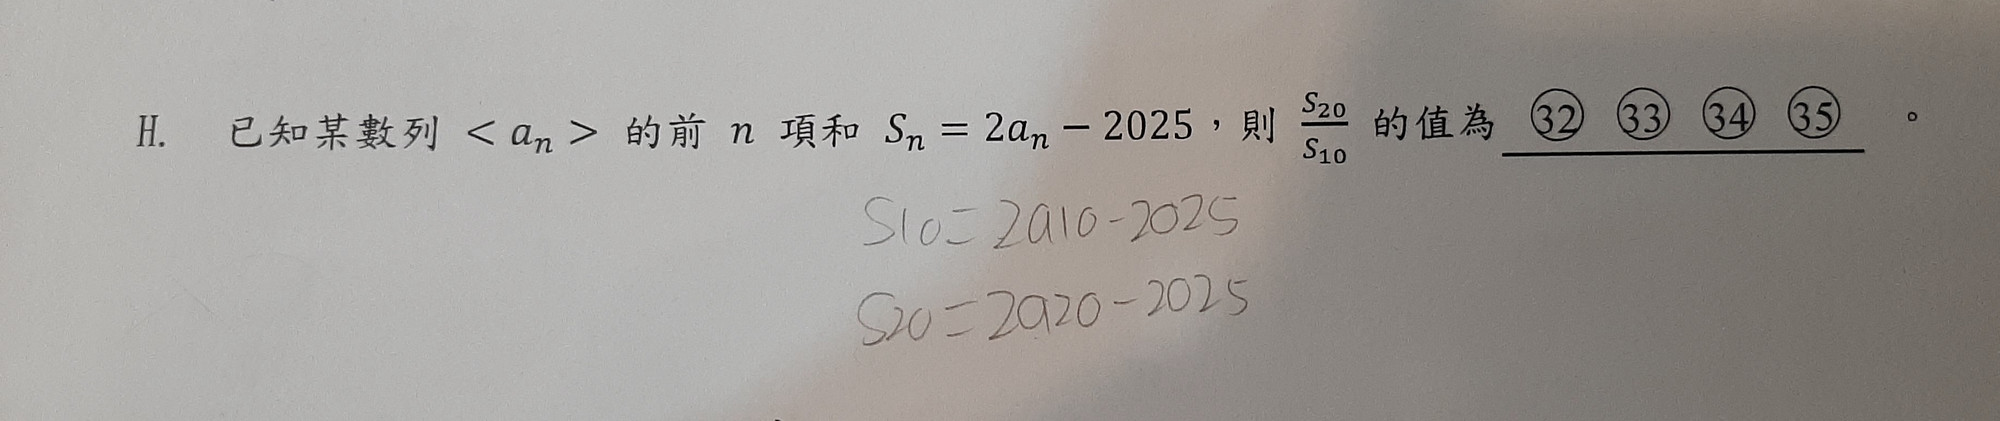 H. 已知某數列 < aₙ > 的前 n 項和 Sₙ = 2aₙ − 2025，則 S₂₀/S₁₀ 的值為 ㉜ ㉝ ㉞ ㉟ 。
S10=2a10-2025
S20=2a20-2025